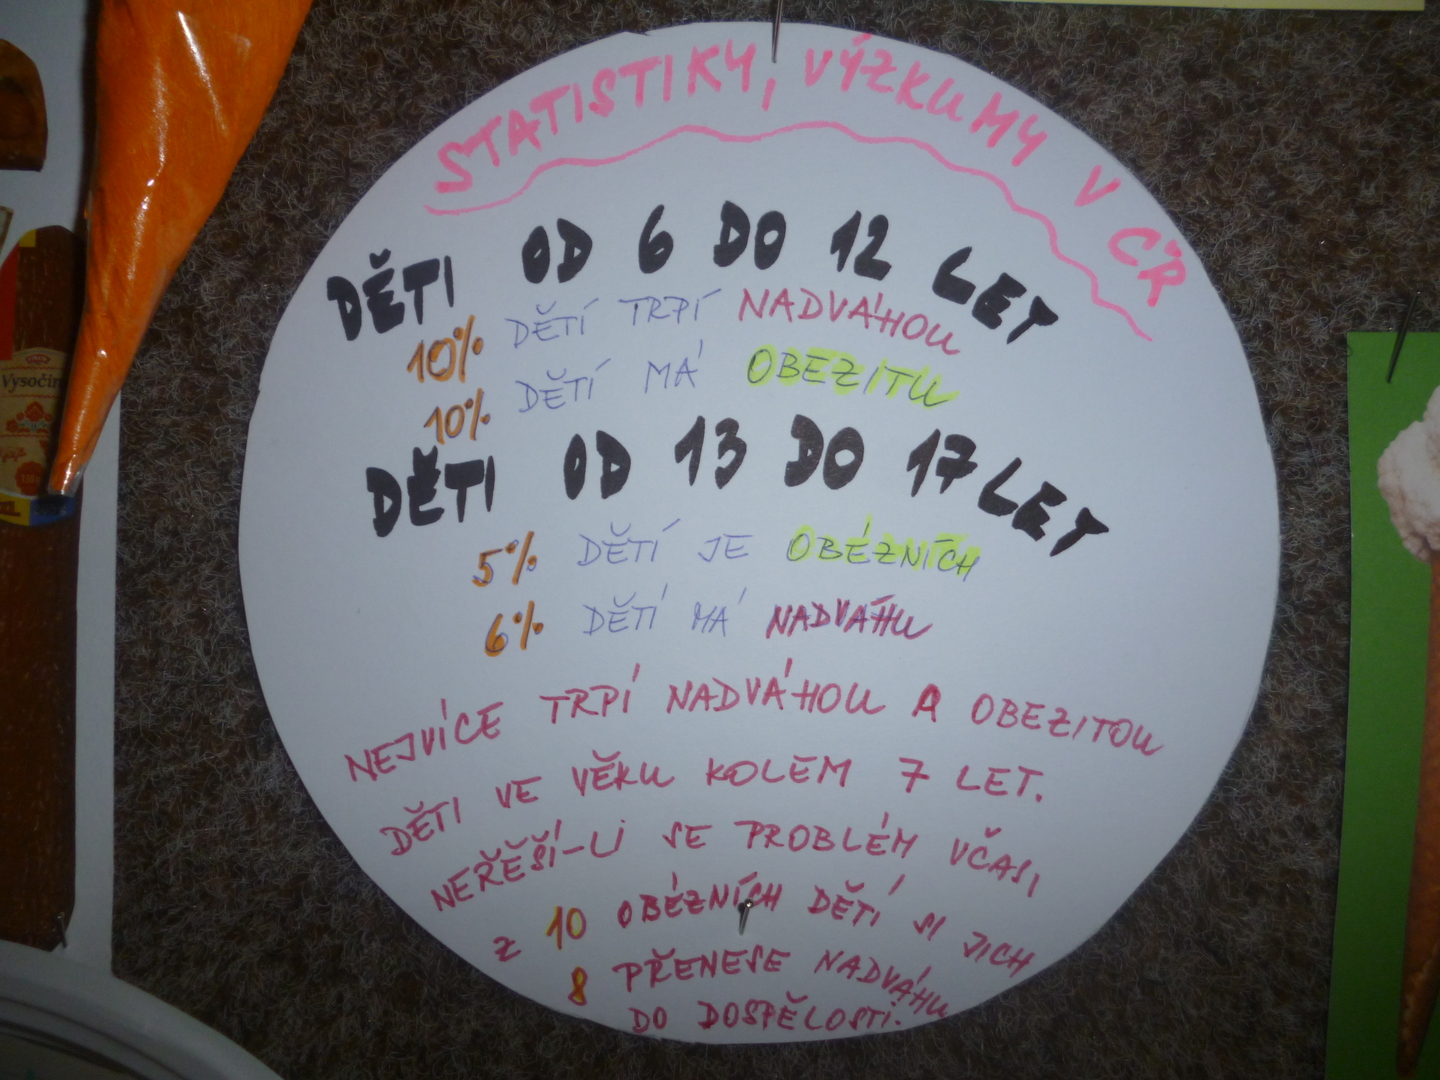 STATISTIKY, VÝZKUMY V ČR
DĚTI OD 6 DO 12 LET
10% DĚTÍ TRPÍ NADVÁHOU
10% DĚTÍ MÁ OBEZITU
DĚTI OD 13 DO 17 LET
5% DĚTÍ JE OBÉZNÍCH
6% DĚTÍ MÁ NADVÁHU
NEJVÍCE TRPÍ NADVÁHOU A OBEZITOU
DĚTI VE VĚKU KOLEM 7 LET.
NEŘEŠÍ-LI SE PROBLÉM VČAS,
Z 10 OBÉZNÍCH DĚTÍ SI JICH
8 PŘENESE NADVÁHU
DO DOSPĚLOSTI.
Vysočin